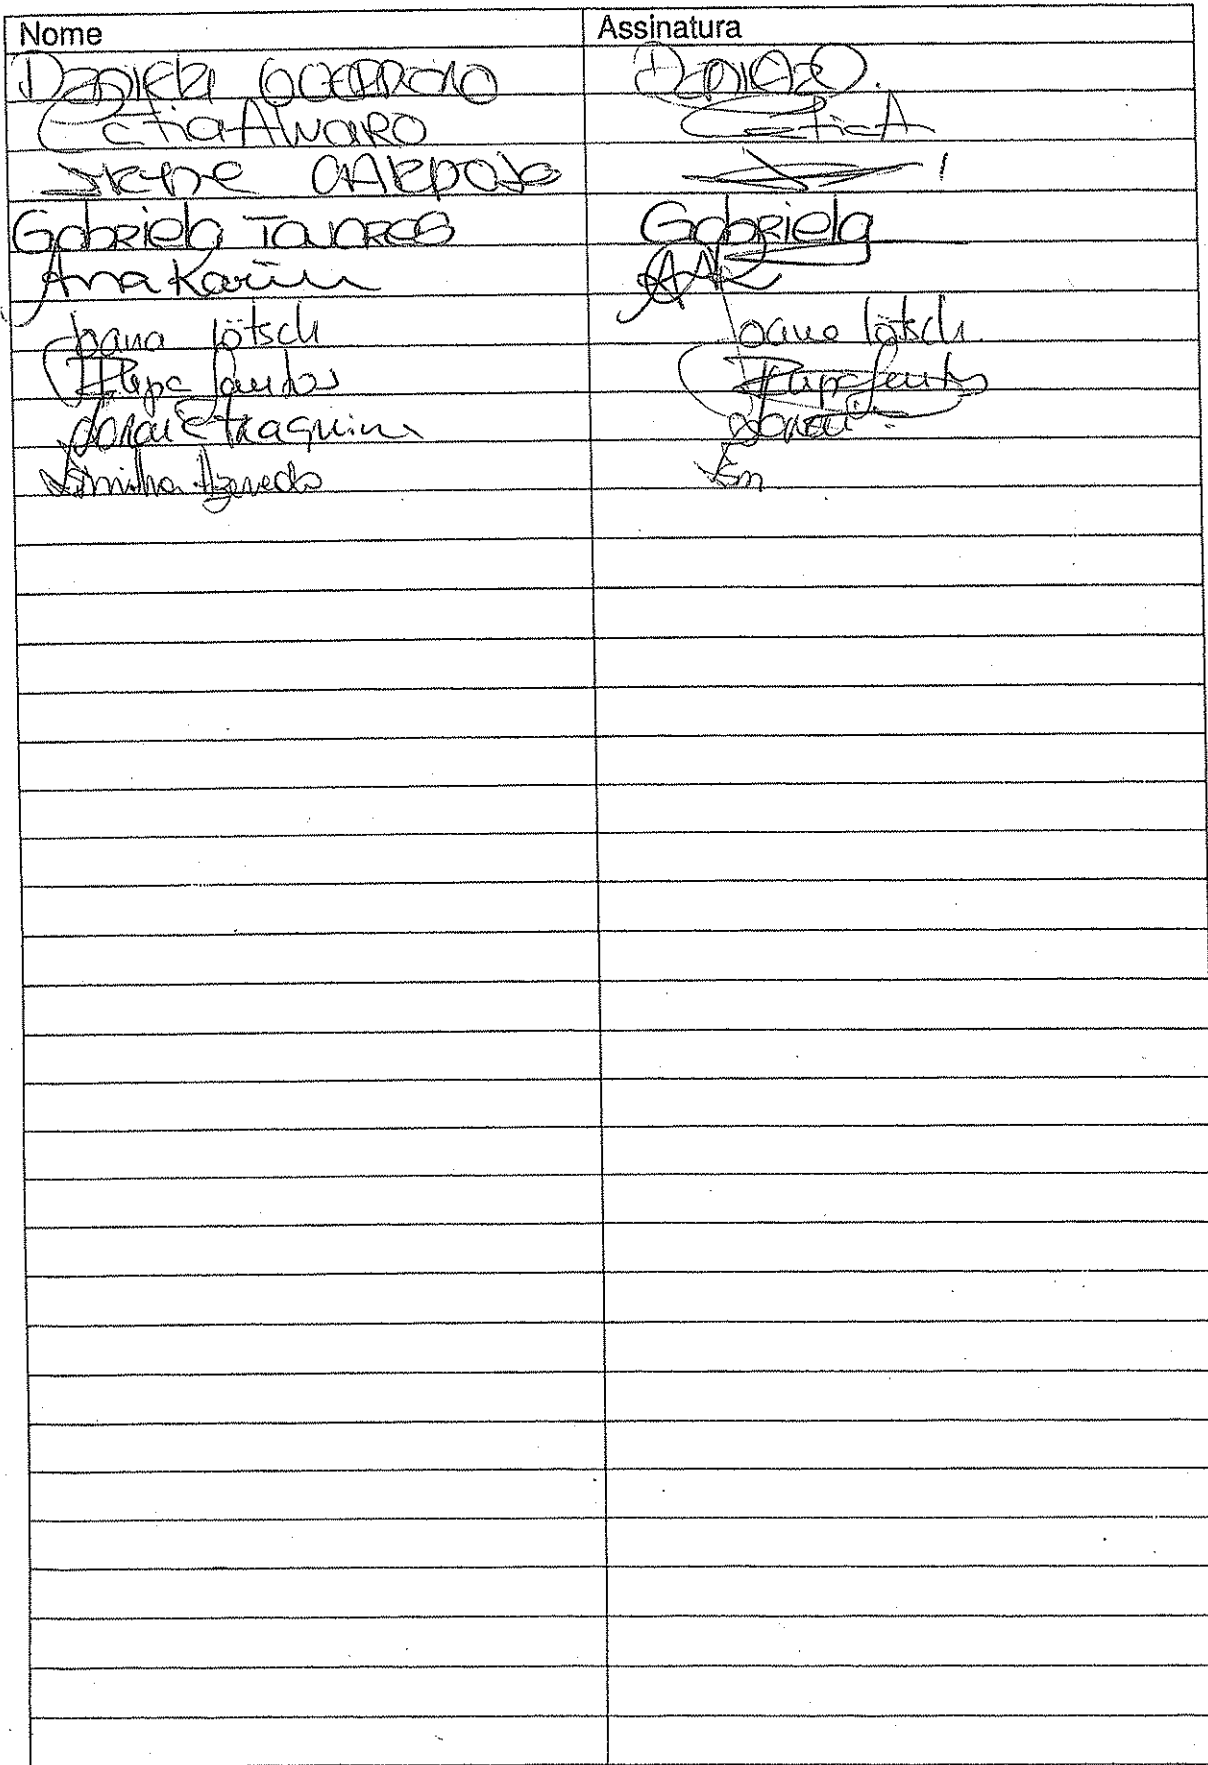 Nome Assinatura
Daniela Guerreiro Daniela
Catia Alvaro Catia A
Irene
Gabriela Tavares Gabriela
Ana Karin AK
Joana lötsch Joana lötsch
Filipa Santos Filipa Santos
Soraia Traquina Soraia
Azevedo